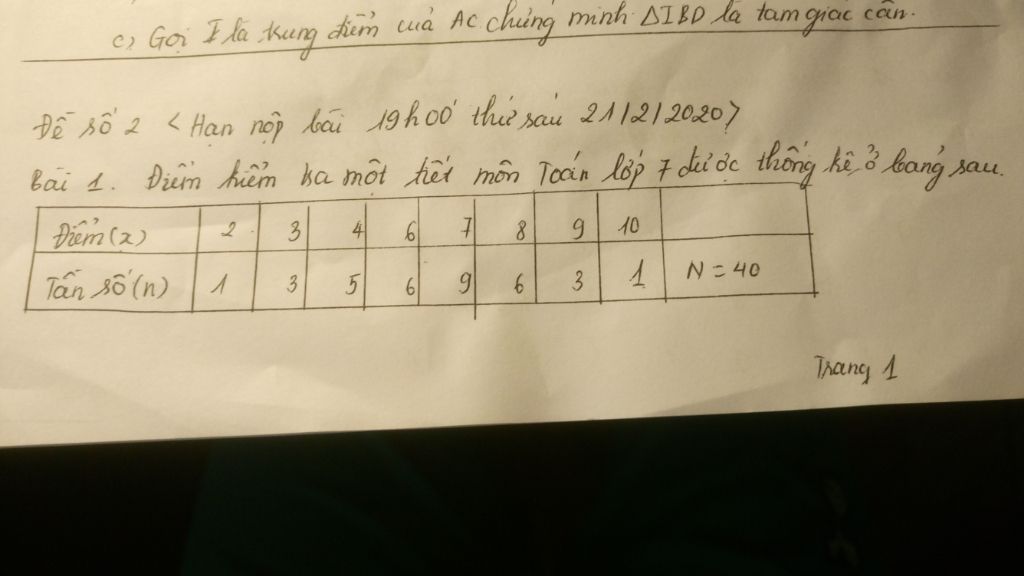 c) Gọi I là trung điểm cuả AC chứng minh ΔIBD là tam giác cân.
Đề số 2 < Hạn nộp bài 19h00 thứ sáu 21/2/2020>
Bài 1. Điểm kiểm tra một tiết môn Toán lớp 7 được thống kê ở bảng sau.
Điểm(x) 2 3 4 6 7 8 9 10
Tần số(n) 1 3 5 6 9 6 3 1 N = 40
Trang 1